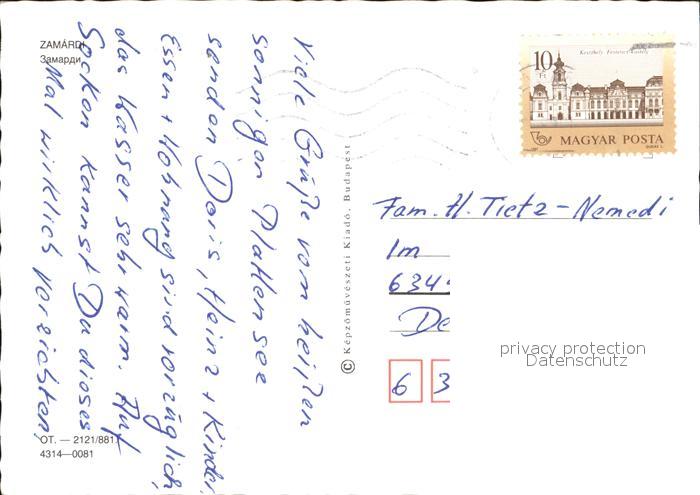 ZAMÁRDI
Замарди
Viele Grüße vom heißen
sonnigen Plattensee
senden Doris, Heinz + Kinder.
Essen + Wohnung sind vorzüglich,
das Wasser sehr warm. Auf
Socken kannst Du dieses
Mal wirklich verzichten.
OT. — 2121/881.
4314—0081
© Képzőművészeti Kiadó, Budapest
10 Ft
Keszthely, Festetics-kastély
MAGYAR POSTA
Fam. H. Tietz-Nemedi
Im
634
De
6 3
privacy protection
Datenschutz